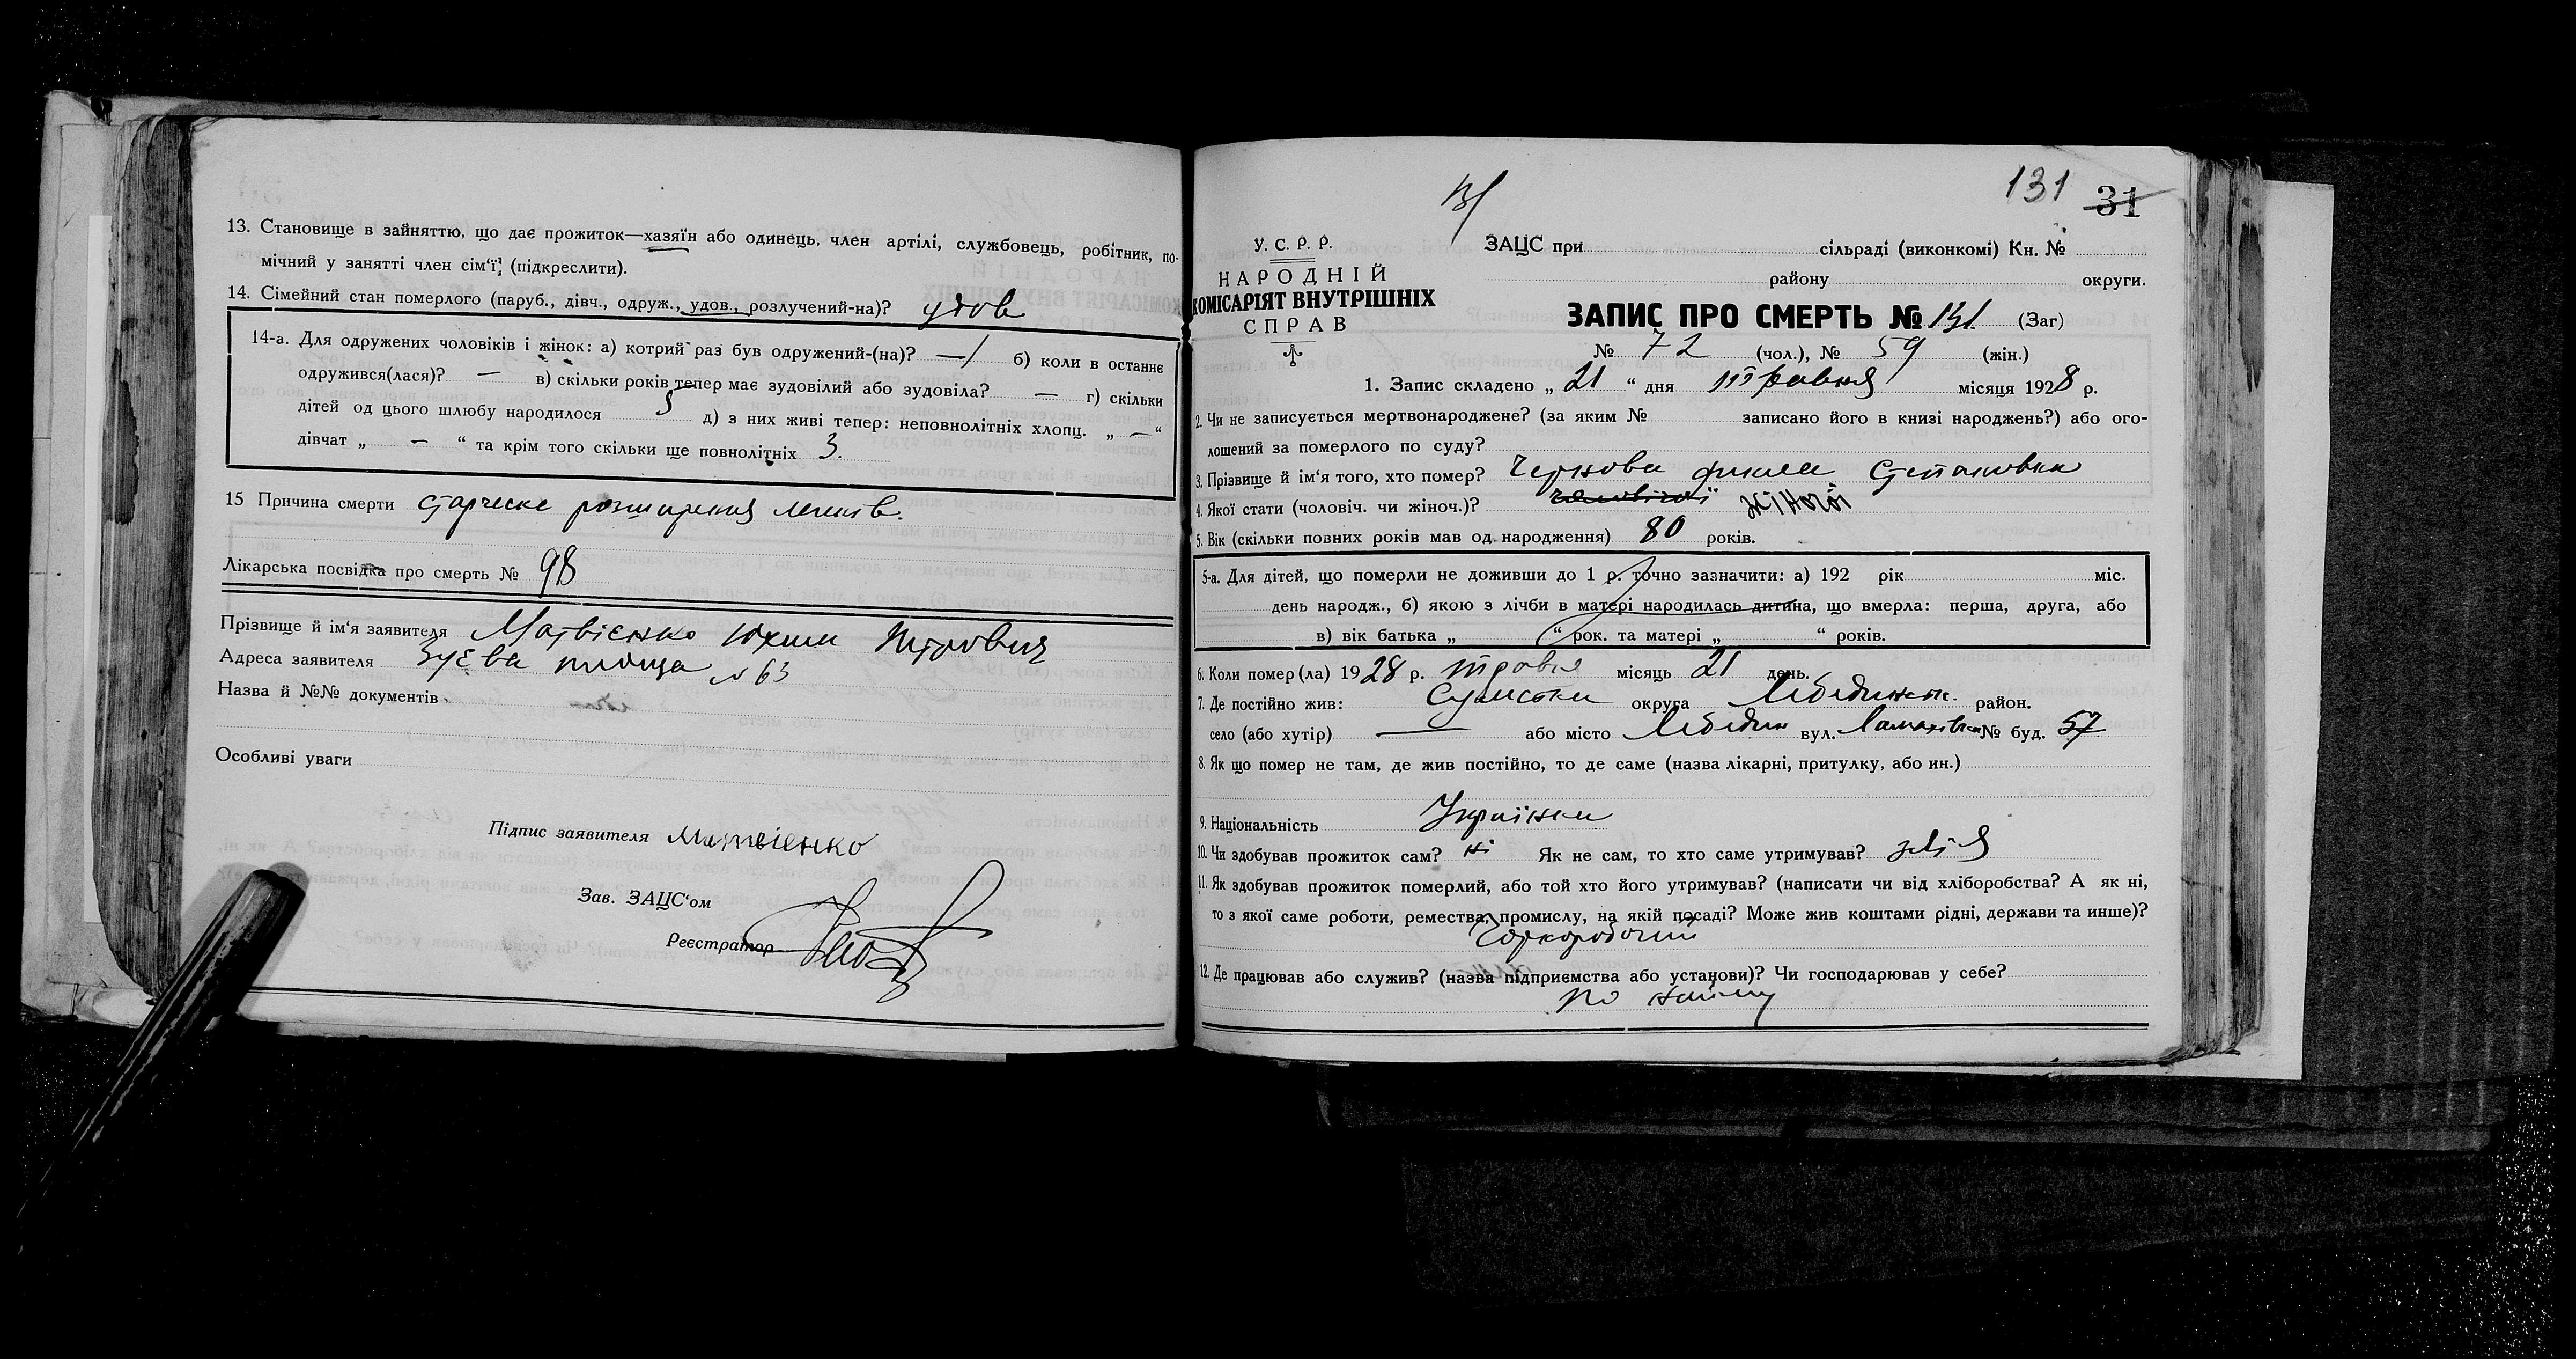 13. Становище в зайняттю, що дає прожиток—хазяїн або одинець, член артілі, службовець, робітник, по-
мічний у занятті член сім'ї, (підкреслити).
14. Сімейний стан померлого (паруб., дівч., одруж., удов., розлучений-на)? удов
14-а. Для одружених чоловіків і жінок: а) котрий раз був одружений-(на)? — б) коли в останнє
одружився(лася)? — в) скільки років тепер має зудовілий або зудовіла? — г) скільки
дітей од цього шлюбу народилося 5 д) з них живі тепер: неповнолітніх хлопц. „ — “
дівчат „ — “ та крім того скільки ще повнолітніх 3.
15 Причина смерти старческе розширення легенів.
Лікарська посвідка про смерть № 98
Прізвище й ім'я заявителя Матвієнко Юхим Петрович
Адреса заявителя Зуєва площа № 63
Назва й №№ документів
Особливі уваги
Підпис заявителя Матвієнко
Зав. ЗАЦС'ом
Реєстратор
131
131 31
У. С. Р. Р.
НАРОДНІЙ
КОМІСАРІЯТ ВНУТРІШНІХ
СПРАВ
ЗАЦС при сільраді (виконкомі) Кн. №
району округи.
ЗАПИС ПРО СМЕРТЬ № 131 (Заг)
№ 72 (чол.), № 59 (жін.)
1. Запис складено „ 21 “ дня травня місяця 1928 р.
2. Чи не записується мертвонароджене? (за яким № записано його в книзі народжень?) або ого-
лошений за померлого по суду?
3. Прізвище й ім'я того, хто помер? Чернова Степановна
4. Якої стати (чоловіч. чи жіноч.)? чоловічої жіночої
5. Вік (скільки повних років мав од народження) 80 років.
5-а. Для дітей, що померли не доживши до 1 р. точно зазначити: а) 192 рік міс.
день народж., б) якою з лічби в матері народилась дитина, що вмерла: перша, друга, або
в) вік батька „ “ рок. та матері „ “ років.
6. Коли помер(ла) 1928 р. травня місяць 21 день.
7. Де постійно жив: Сумська округа Лебединськ. район.
село (або хутір) — або місто Лебедин вул. № буд. 57
8. Як що помер не там, де жив постійно, то де саме (назва лікарні, притулку, або ин.)
9. Національність Українка
10. Чи здобував прожиток сам? ні Як не сам, то хто саме утримував?
11. Як здобував прожиток померлий, або той хто його утримував? (написати чи від хліборобства? А як ні,
то з якої саме роботи, ремества, промислу, на якій посаді? Може жив коштами рідні, держави та инше)?
Чорноробочий
12. Де працював або служив? (назва підприємства або установи)? Чи господарював у себе?
по найму